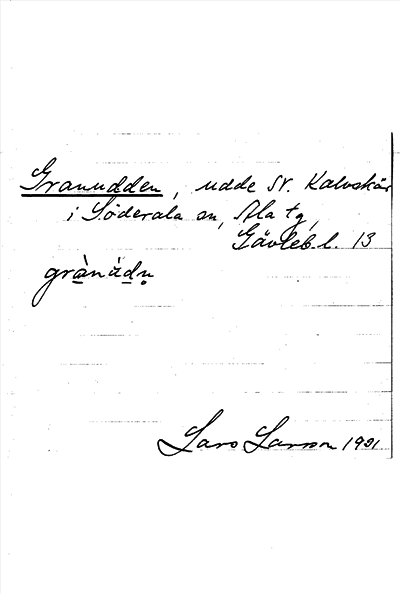 Granudden, udde SV. Kalvskär
i Söderala sn, Ala tg,
Gävleb. l. 13
grànädn
Lars Larsson 1931